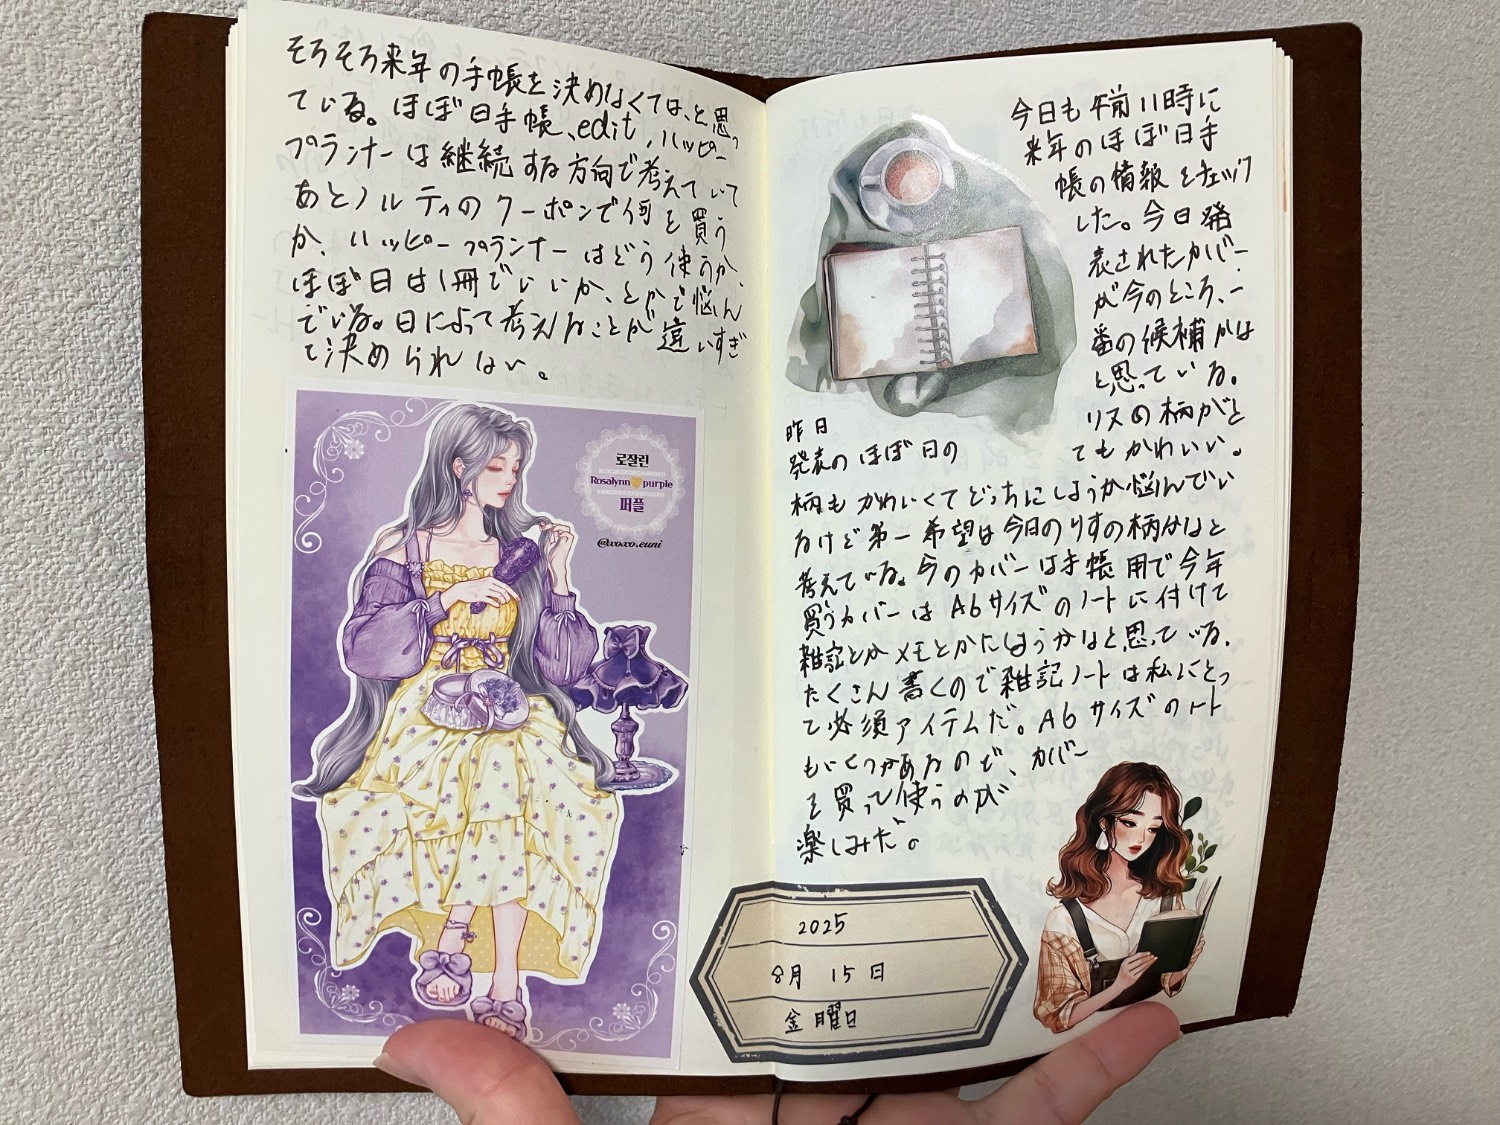 そろそろ来年の手帳を決めなくては、と思っ
ている。ほぼ日手帳、edit、ハッピー
プランナーは継続する方向で考えていて
あとノルティのクーポンで何を買う
か、ハッピープランナーはどう使うか、
ほぼ日は1冊でいいか、とかで悩ん
でいる。日によって考えることが違いすぎ
て決められない。
로잘린
Rosalynn purple
퍼플
@xoxo.euni
今日も午前11時に
来年のほぼ日手
帳の情報をチェック
した。今日発
表されたカバー
が今のところ、一
番の候補かな
と思っている。
リスの柄がと
てもかわいい。
昨日
発表のほぼ日の
柄もかわいくてどっちにしようか悩んでい
るけど第一希望は今日のりすの柄かなと
考えている。今のカバーは手帳用で今年
買うカバーはA6サイズのノートに付けて
雑記とかメモとかにしようかなと思っている。
たくさん書くので雑記ノートは私にとっ
て必須アイテムだ。A6サイズのノート
もいくつかあるので、カバー
を買って使うのが
楽しみだ。
2025
8月 15日
金曜日